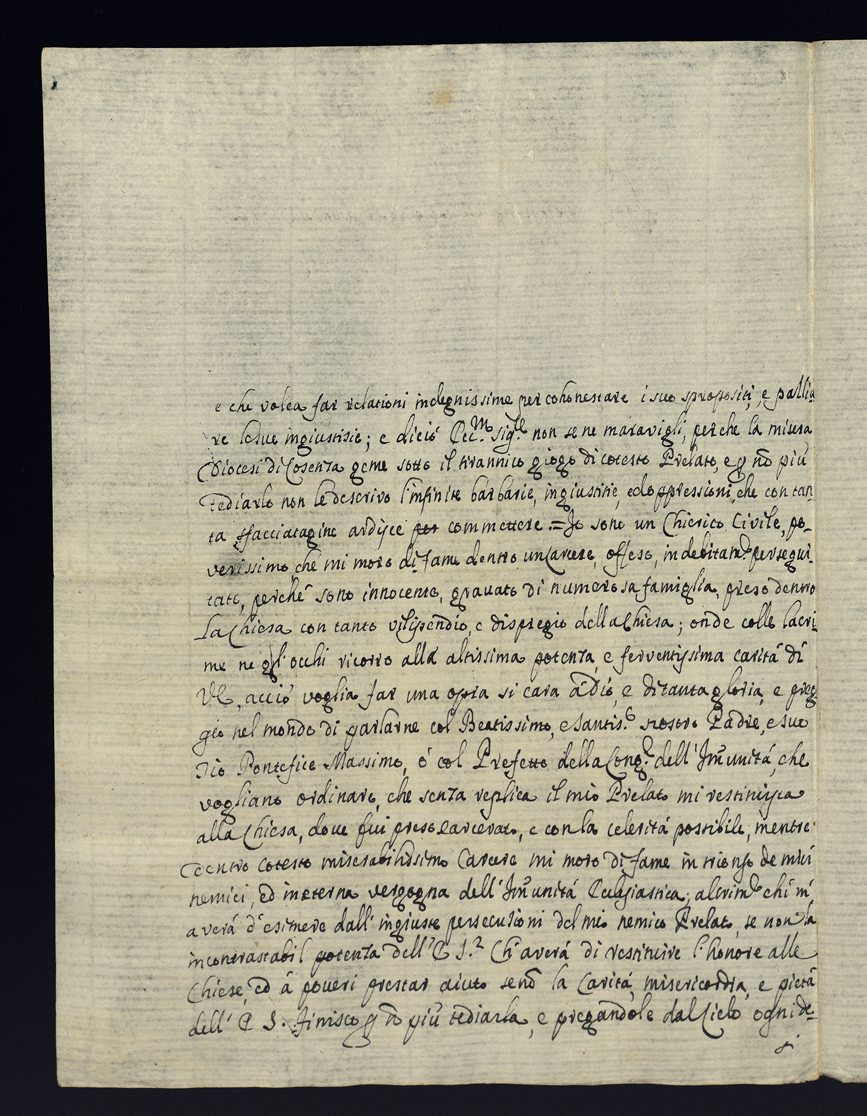 e che volea far relationi indegnissime per cohonestare i suoi spropositi, e pallia-
re le sue ingiustisie; e di ciò Ecc.mo Sig.re non se ne maravigli, perche la misera
Diocesi di Cosenza geme sotto il tirannico giogo di cotesto Prelato, e p nõ più
tediarlo non le descrivo l'infinite barbarie, ingiustitie, ed oppressioni, che con tan
ta sfacciatagine ardisce commettere = Io sono un Chierico Civile, po-
verissimo, che mi moro di fame dentro un Carcere, offeso, indebitam.e persegui-
tato, perché sono innocente, gravato di numerosa famiglia, preso dentro
la Chiesa con tanto vilipendio, e dispregio della Chiesa; onde colle lacri-
me ne gl'occhi ricorro alla altissima potenza, e ferventissima carità di
VE, acciò voglia far una opra si cara à Dio, e di tanta gloria, e preg
gio nel mondo di parlarne col Beatissimo, e Santis.o nostro Padre, e suo
Zio Pontefice Massimo, ò col Prefetto della Cong.e dell'Im̃unità, che
vogliano ordinare, che senza replica il mio Prelato mi restituisca
alla Chiesa, dove fui preso e carcerato, e con la celerità possibile, mentre
dentro cotesto miserabilissimo Carcere mi moro di fame in trionfo de miei
nemici, ed in eterna vergogna dell'Im̃unità Ecclesiastica, altrim.e chi m'
averà d'esimere dall'ingiuste persecutioni del mio nemico Prelato, se non la
incontrastabil potenza dell'E S.? Ch'averà di restituire l'honore alle
Chiese, ed à poveri prestar aiuto senõ la Carità, misericordia, e pietà
dell'E S. Finisco p nõ più tediarla, e pregandole dal Cielo ogni de-